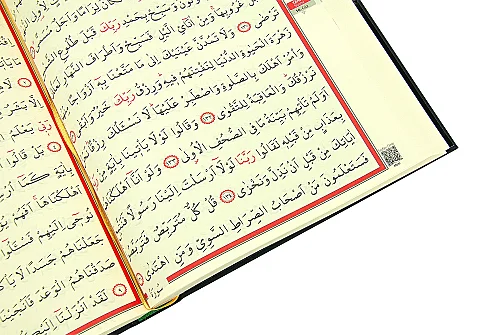 وَسَبِّحْ بِحَمْدِ رَبِّكَ قَبْلَ طُلُوعِ
غُرُوبِهَا وَمِنْ اٰنَائِ الَّيْلِ فَسَبِّحْ وَاَطْرَافَ النَّهَارِ
تَرْضٰى ﴿١٣٠﴾ وَلَا تَمُدَّنَّ عَيْنَيْكَ اِلٰى مَا مَتَّعْنَا بِهٖ اَزْوَاجًا
زَهْرَةَ الْحَيٰوةِ الدُّنْيَا لِنَفْتِنَهُمْ فِيهِ وَرِزْقُ رَبِّكَ خَيْرٌ وَاَبْقٰى
وَأْمُرْ اَهْلَكَ بِالصَّلٰوةِ وَاصْطَبِرْ عَلَيْهَا لَا نَسْـَٔلُكَ رِزْقًا
نَرْزُقُكَ وَالْعَاقِبَةُ لِلتَّقْوٰى ﴿١٣٢﴾ وَقَالُوا لَوْلَا يَأْتِينَا بِاٰيَةٍ مِنْ
اَوَلَمْ تَأْتِهِمْ بَيِّنَةُ مَا فِي الصُّحُفِ الْاُولٰى ﴿١٣٣﴾ وَلَوْ اَنَّا اَهْلَكْنَا
بِعَذَابٍ مِنْ قَبْلِهٖ لَقَالُوا رَبَّنَا لَوْلَا اَرْسَلْتَ اِلَيْنَا رَسُولًا فَنَتَّبِعَ
اٰيَاتِكَ مِنْ قَبْلِ اَنْ نَذِلَّ وَنَخْزٰى ﴿١٣٤﴾ قُلْ كُلٌّ مُتَرَبِّصٌ فَتَرَبَّصُوا
فَسَتَعْلَمُونَ مَنْ اَصْحَابُ الصِّرَاطِ السَّوِيِّ وَمَنِ اهْتَدٰى
رَبِّي يَعْلَمُ
بَلْ قَالُوا
بِاٰيَةٍ كَمَا
اَهْلَكْنَاهَا اَفَهُمْ
نُوحِي اِلَيْهِمْ فَسْـَٔلُوا
جَعَلْنَاهُمْ جَسَدًا لَا
صَدَقْنَاهُمُ الْوَعْدَ فَاَنْجَيْنَا
لَقَدْ اَنْزَلْنَا